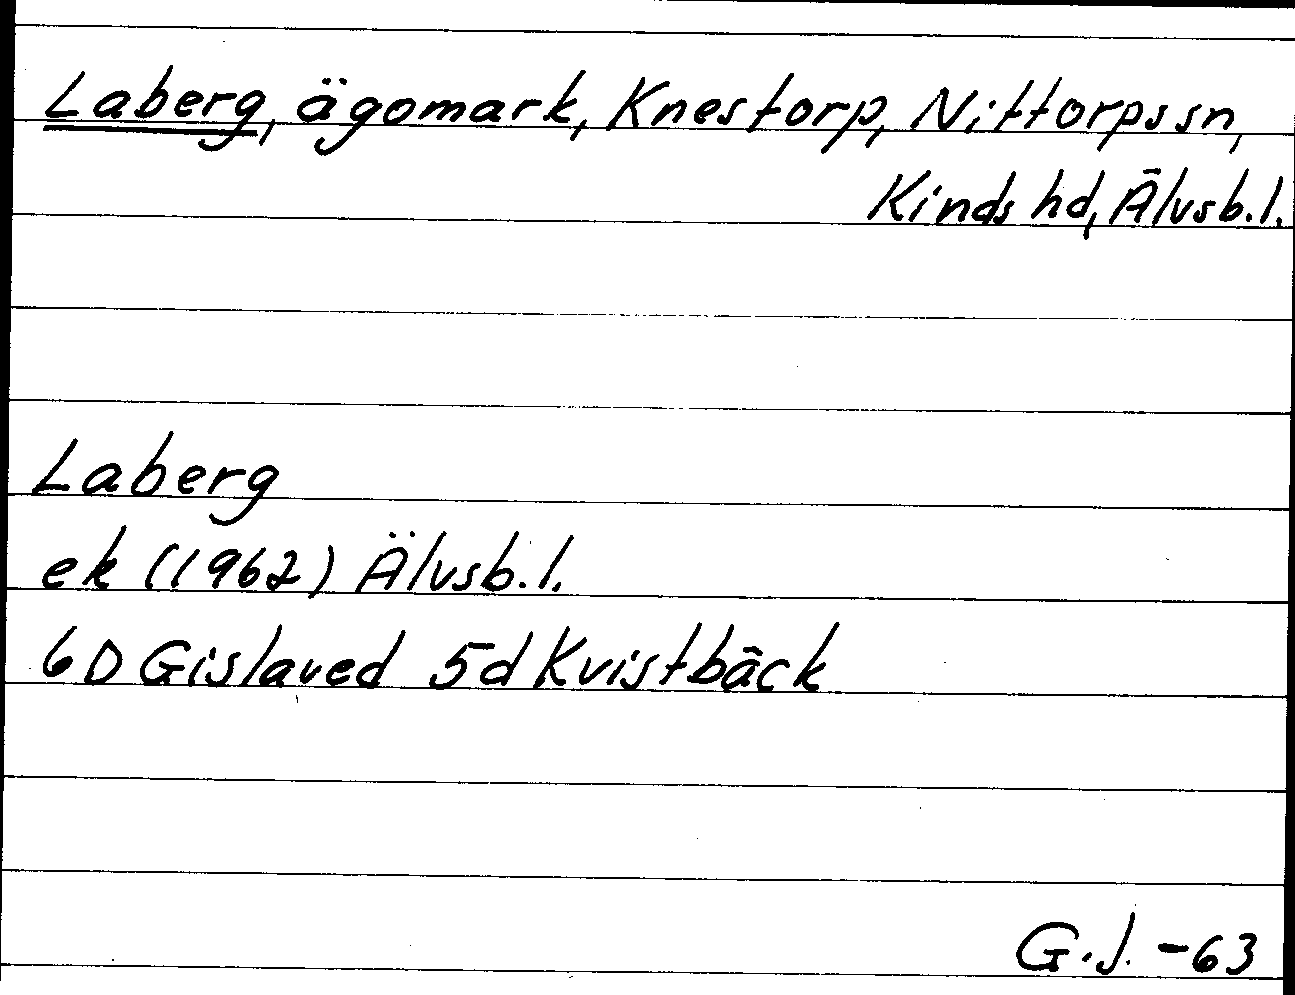 Laberg, ägomark, Knestorp, Nittorps sn,
Kinds hd, Älvsb. l.
Laberg
ek (1962) Älvsb. l.
6D Gislaved 5d Kvistbäck
G.J. -63